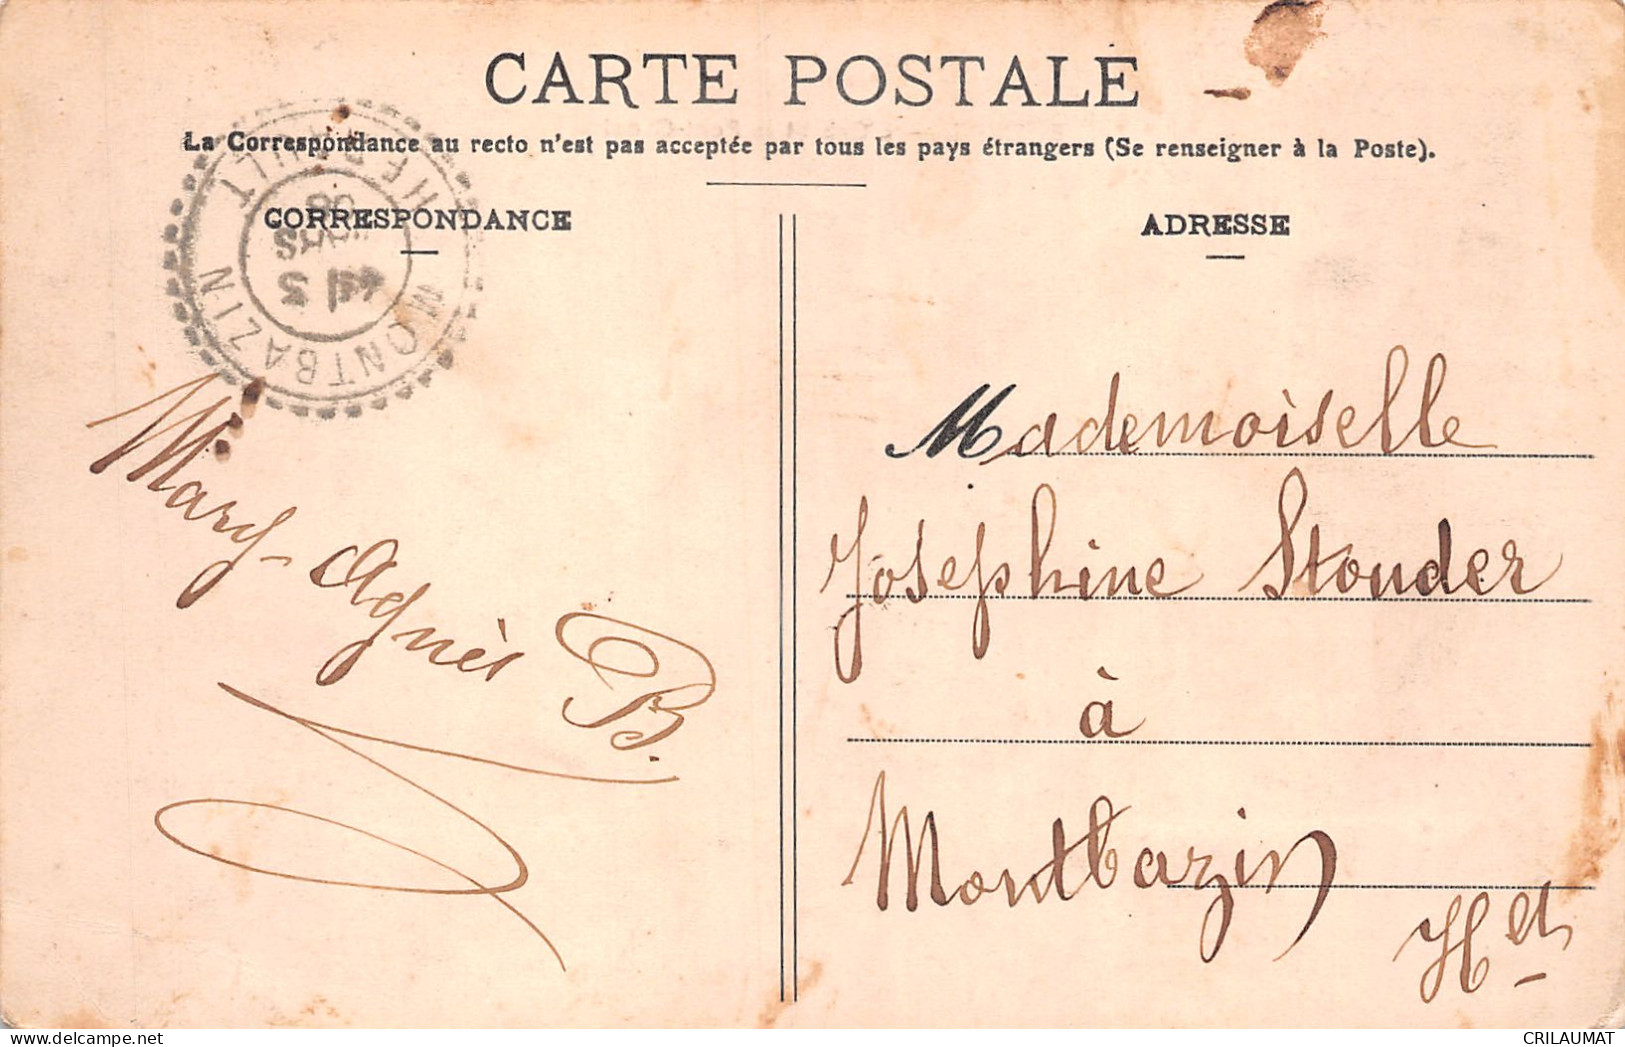 CARTE POSTALE
La Correspondance au recto n'est pas acceptée par tous les pays étrangers (Se renseigner à la Poste).
CORRESPONDANCE
ADRESSE
MONTBAZIN
HERAULT
08
Mary-Agnès B.
Mademoiselle
Josephine Stouder
à
Montbazin
Hlt
CRILAUMAT